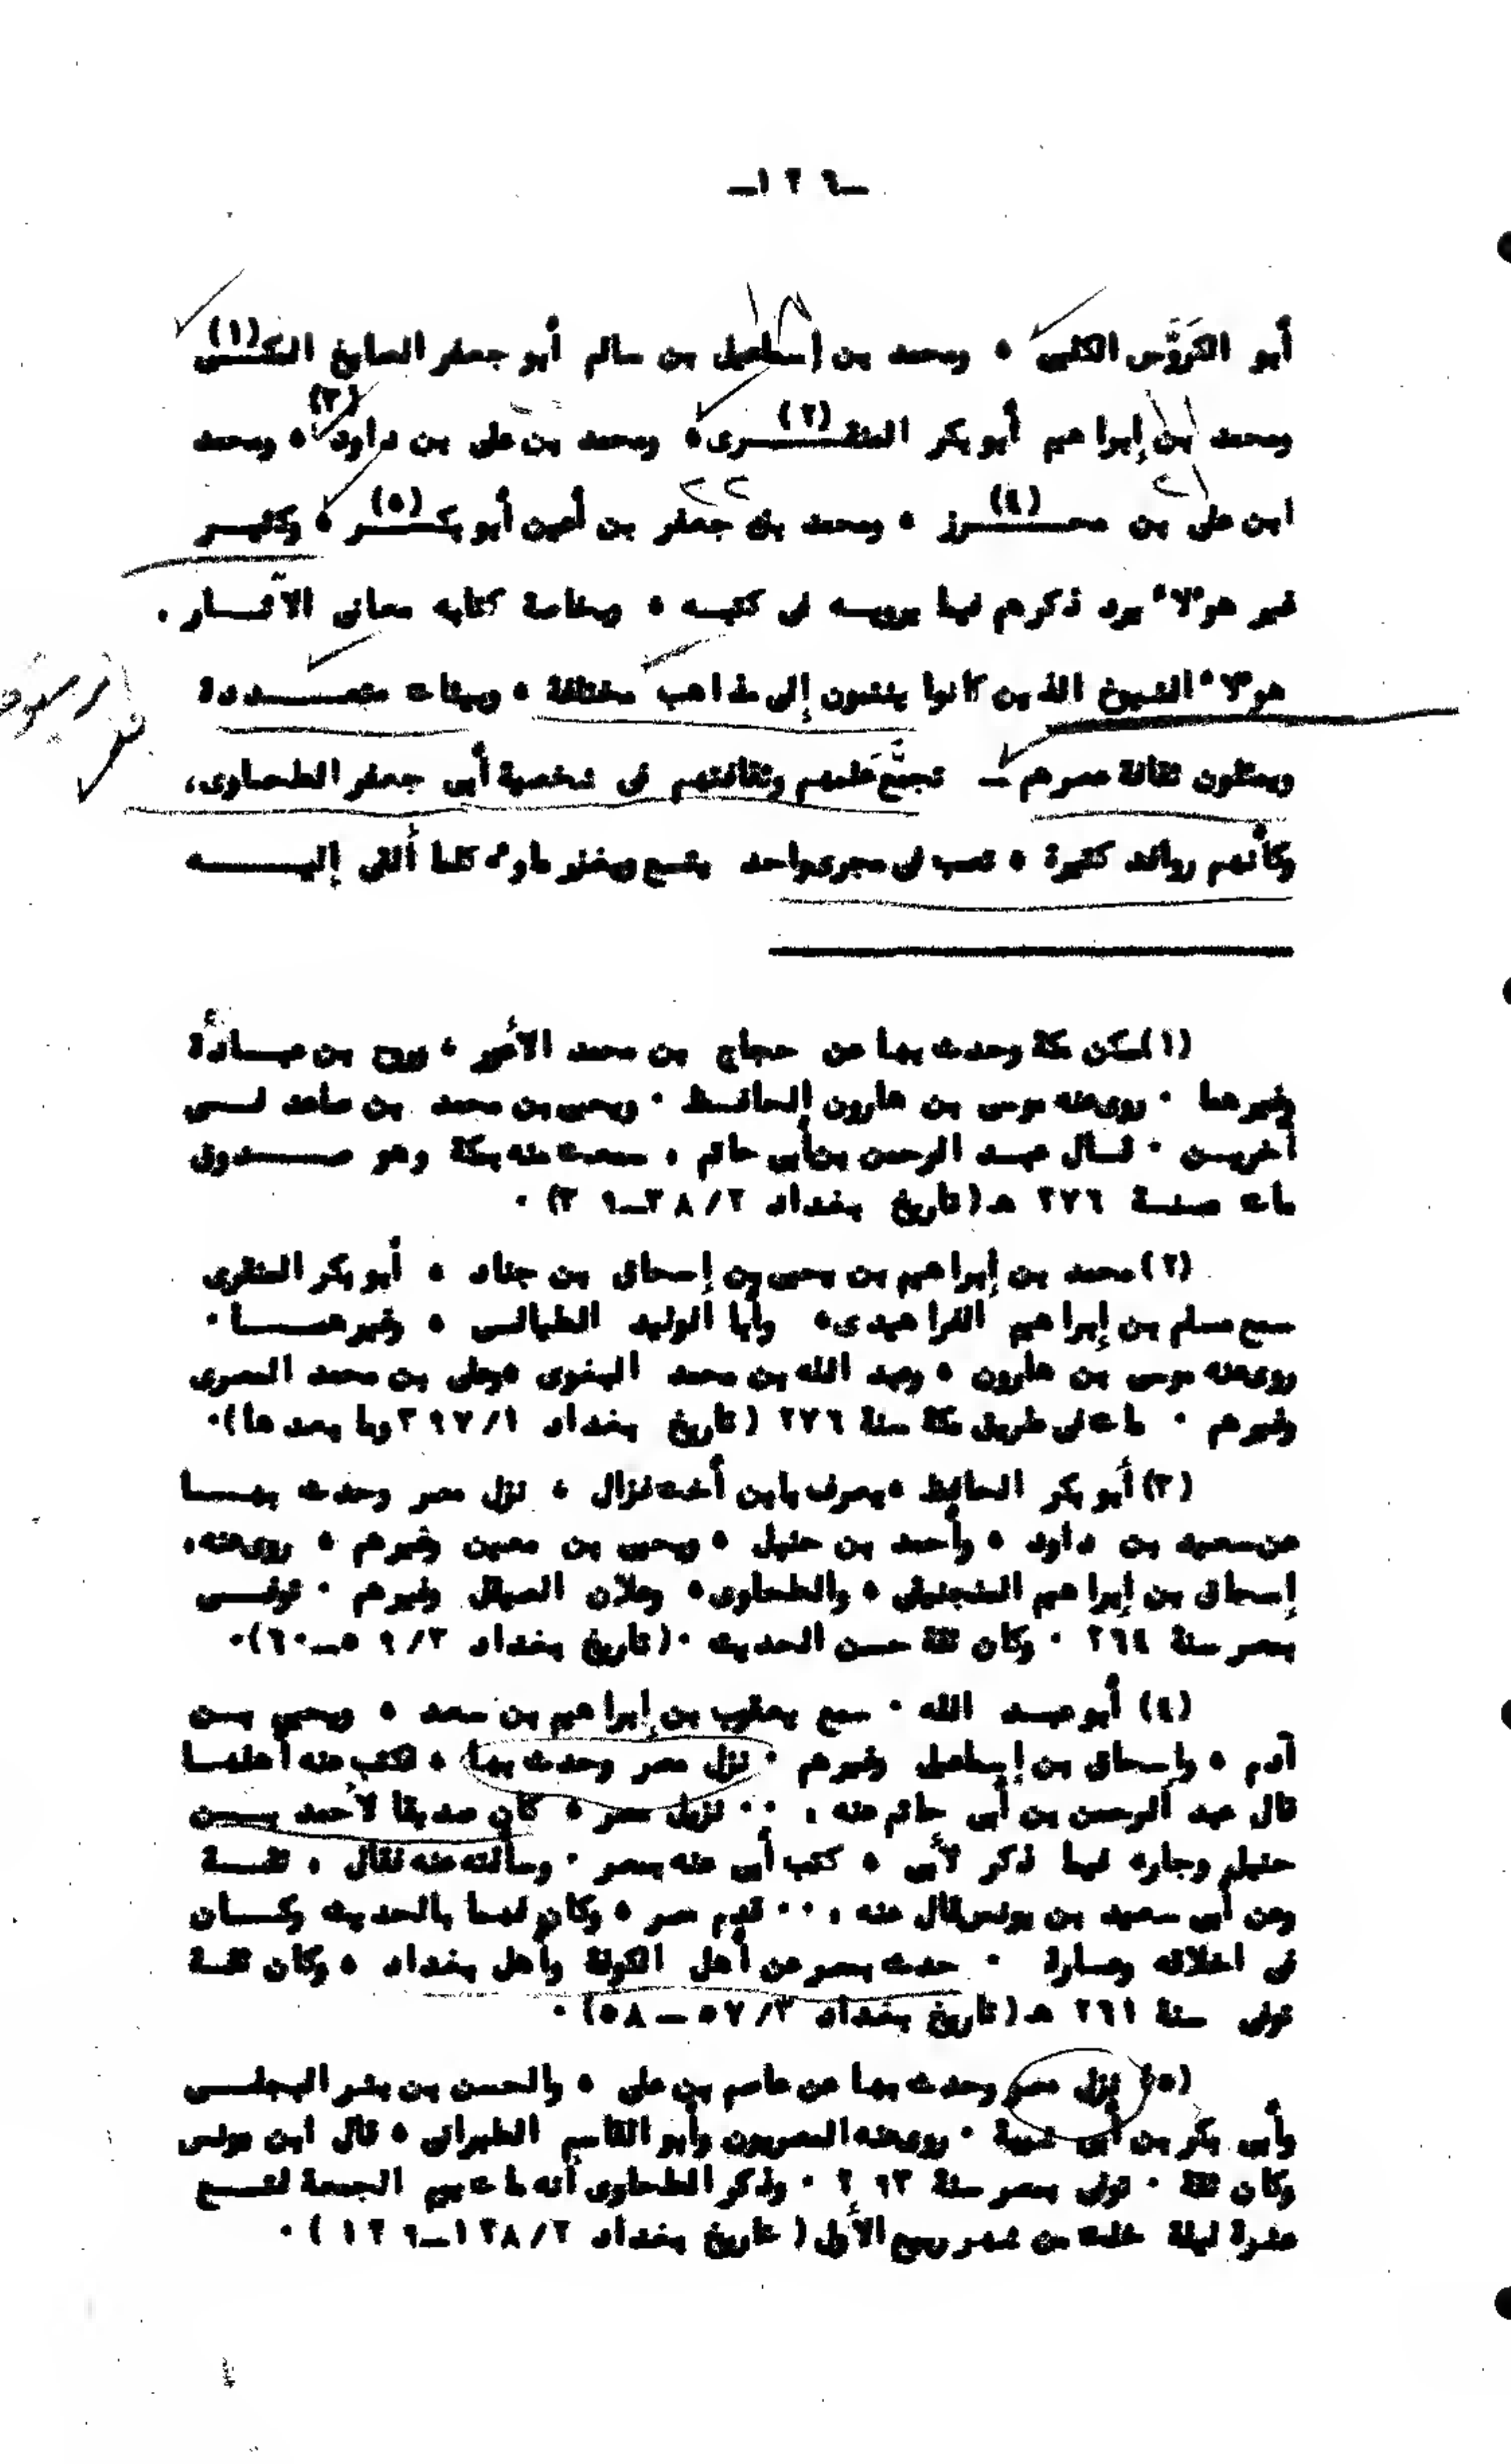 -١٢٦-
أبو الكَرَوَّس الكلبى ، ومحمد بن إسماعيل بن سالم أبو جعفر الصايغ المكـى (١)
ومحمد بن إبراهيم أبو بكر المنقـــرى (٢) ، ومحمد بن على بن داود (٣) ، ومحمد
ابن على بن محـــرز (٤) ، ومحمد بن جعفر بن أعين أبو بكـــر (٥) ، وكثيـــر
غير هؤلاء يرد ذكرهم فيما يرويـه فى كتبـه ، وبخاصة كتابه معانى الآثـــار .
هؤلاء الشيوخ الذين كانوا ينتمون إلى مذاهب مختلفة ، وبيئات متعـــددة
ويمثلون ثقافة عصرهم ـ تجمَّع علمهم وثقافتهم فى شخصية أبى جعفر الطحاوى،
وكأنهم روافد كثيرة ، تصب فى مجرى واحد يتسع ويغزر ماؤه كلما ألقى إليـــه
(١) سكن مكة وحدث بها عن حجاج بن محمد الأعور ، وروح بن عبـــادة
وغيرهما . روى عنه موسى بن هارون الحافـظ . ويحيى بن محمد بن صاعد فـى
آخريـن . قـال عبـد الرحمن بن أبى حاتم ، سمعت منه بمكة وهو صـــدوق
مات سنـة ٢٧٦ هـ (تاريخ بغداد ٢/ ٣٨ـ٣٩) .
(٢) محمد بن إبراهيم بن يحيى بن إسحاق بن جناد ، أبو بكر المنقرى
سمع مسلم بن إبراهيم الفراهيدى، وأبا الوليد الطيالسى ، وغيرهـمـــا .
روى عنه موسى بن هارون ، وعبد الله بن محمد البغوى ، وعلى بن محمد المصرى
وغيرهم . مات فى طريق مكة سنة ٢٧٦ (تاريخ بغداد ١/ ٣٩٧ وما بعدها).
(٣) أبو بكر الحافظ ، يعرف بابن أخت غزال ، نزل مصر وحدث بهـــا
عن سعيد بن داود ، وأحمد بن حنبل ، ويحيى بن معين وغيرهم ، روى عنه،
إسحاق بن إبراهيم المنجنيقى ، والطحاوى، وعلان الصيقل وغيرهم . توفـــى
بمصر سنة ٢٦٤ . وكان ثقة حسن الحديث .(تاريخ بغداد ٣/ ٥٩ـ٦٠).
(٤) أبو عبـد الله . سمع يعقوب بن إبراهيم بن سعد ، ويحيى بـــن
آدم ، وإسحاق بن إسماعيل وغيرهم . نزل مصر وحدث بها ، فكتب عنه أهلهـا
قال عبد الرحمن بن أبى حاتم عنه ، .. نزيل مصر ، كان صديقا لأحمد بـــن
حنبل وجاره فيما ذكر لأبى ، كتب أبى عنه بمصر . وسألته عنه فقال ، ثقـــة
وعن أبى سعيد بن يونس قال عنه ، .. قدم مصر ، وكان فهما بالحديث وكـــان
فى أخلاقه وعارة . حدث بمصر عن أهل الكوفة وأهل بغداد ، وكان ثقـة
توفى سنة ٢٦١ هـ (تاريخ بغداد ٣/ ٥٧ ـ ٥٨) .
(٥) نزل مصر وحدث بها عن عاصم بن على ، والحسن بن بشر البجلـــى
وأبى بكر بن أبى شيبة . روى عنه المصريون وأبو القاسم الطبرانى ، قال ابن يونس
وكان ثقة . توفى بمصر سنة ٢٩٣ . وذكر الطحاوى أنه مات يوم الجمعة لتســـع
عشرة ليلة خلت من شهر ربيع الأول ( تاريخ بغداد ٢/ ١٢٨ـ١٢٩ ) .